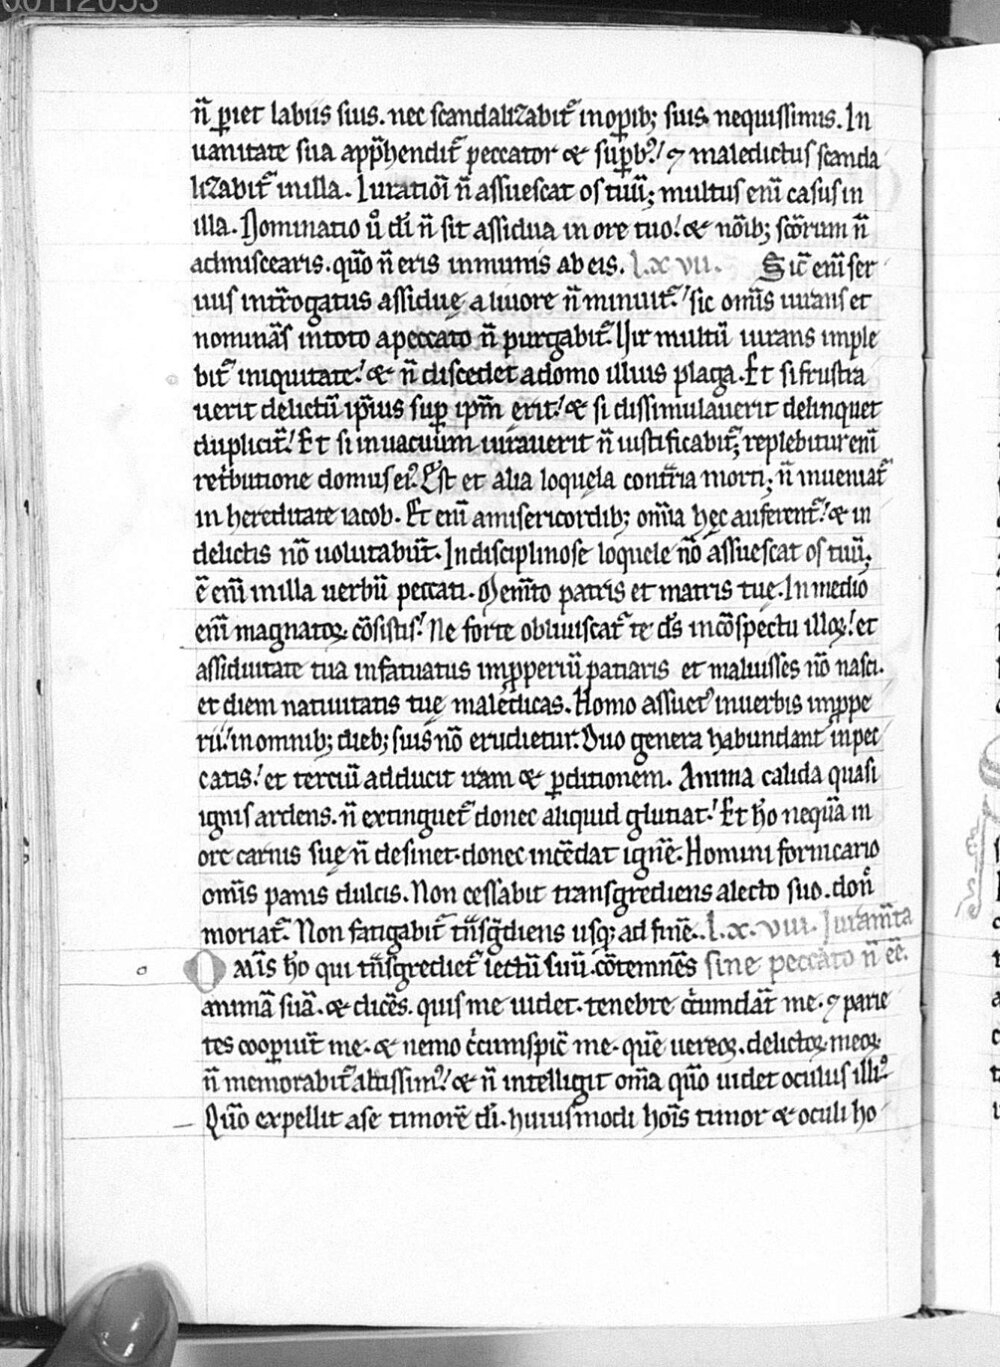 00112053
n̄ ꝑiet labiis suis. nec scandalizabit᷑ in oꝑib; suis nequissimis. In
uanitate sua app̄hendit᷑ peccator & suꝑbꝰ. ⁊ maledictus scanda
lizabit᷑ in illa. Iuratiōi n̄ assuescat os tuū; multus eni᷑ casus in
illa. Nominatio u̾ di̅ n̄ sit assidua in ore tuo. & nōib; scōrum n̄
admiscearis. quō n̄ eris inmunis ab eis. l.x vii. Sic̄ eni᷑ ser
uus int̄rogatus assidue a liuore n̄ minuit᷑. sic om̄s iurans et
nominās in toto a peccato n̄ purgabit᷑. Uir multū iurans imple
bit᷑ iniquitate. & n̄ discedet a domo illius plaga. Et si frustra
uerit delictū ip̄ius suꝑ ip̄m erit. & si dissimulauerit delinquet
dupliciť. Et si in uacuum iurauerit n̄ iustificabit᷑; replebitur eni᷑
ret̄butione domus eiꝰ. Est et alia loquela cont̄ria morti; n̄ inueniat᷑
in hereditate iacob. Et eni᷑ a misericordib; om̄ia hęc auferent᷑. & in
delictis nō uolutabūt. Indisciplinose loquele nō assuescat os tuū;
ē eni᷑ in illa uerbū peccati. Mem̄to patris et matris tuę. In medio
eni᷑ magnatoꝝ cōsistis. Ne forte obliuiscat᷑ te ds̄ in cōspectu illoꝝ. et
assiduitate tua infatuatus imꝓperiū patiaris et maluisses nō nasci.
et diem natiuitatis tuę maledicas. Homo assuetꝰ in uerbis imꝓpe
rii. in omnib; dieb; suis nō erudietur. Duo genera habundant in pec
catis. et terciū adducit iram & ꝑditionem. Anima calida quasi
ignis ardens. n̄ extinguet᷑ donec aliquid glutiat. Et hō nequā in
ore carnis suę n̄ desinet. donec incēdat ignē. Homini fornicario
om̄is panis dulcis. Non cessabit transgrediens a lecto suo. don̄
moriat᷑. Non fatigabit᷑ tn̄sg̃diens usq; ad finē. l.x.viii. Iuram̄ta
Om̄is hō qui tn̄sgrediet᷑ lectū suū. cōtemnēs sine peccato n̄ eē.
animā suā. & dicēs. quis me uidet. tenebre c̓cumdāt me. ⁊ parie
tes cooꝑiūt me. & nemo c̓cumspic̄ me. quē uereoꝝ. delictoꝝ meoꝝ
n̄ memorabit᷑ altissimꝰ. & n̄ intelligit om̄a quō uidet oculus illiꝰ.
Quō expellit a se timorē di̅. huiusmodi hoīs timor & oculi ho